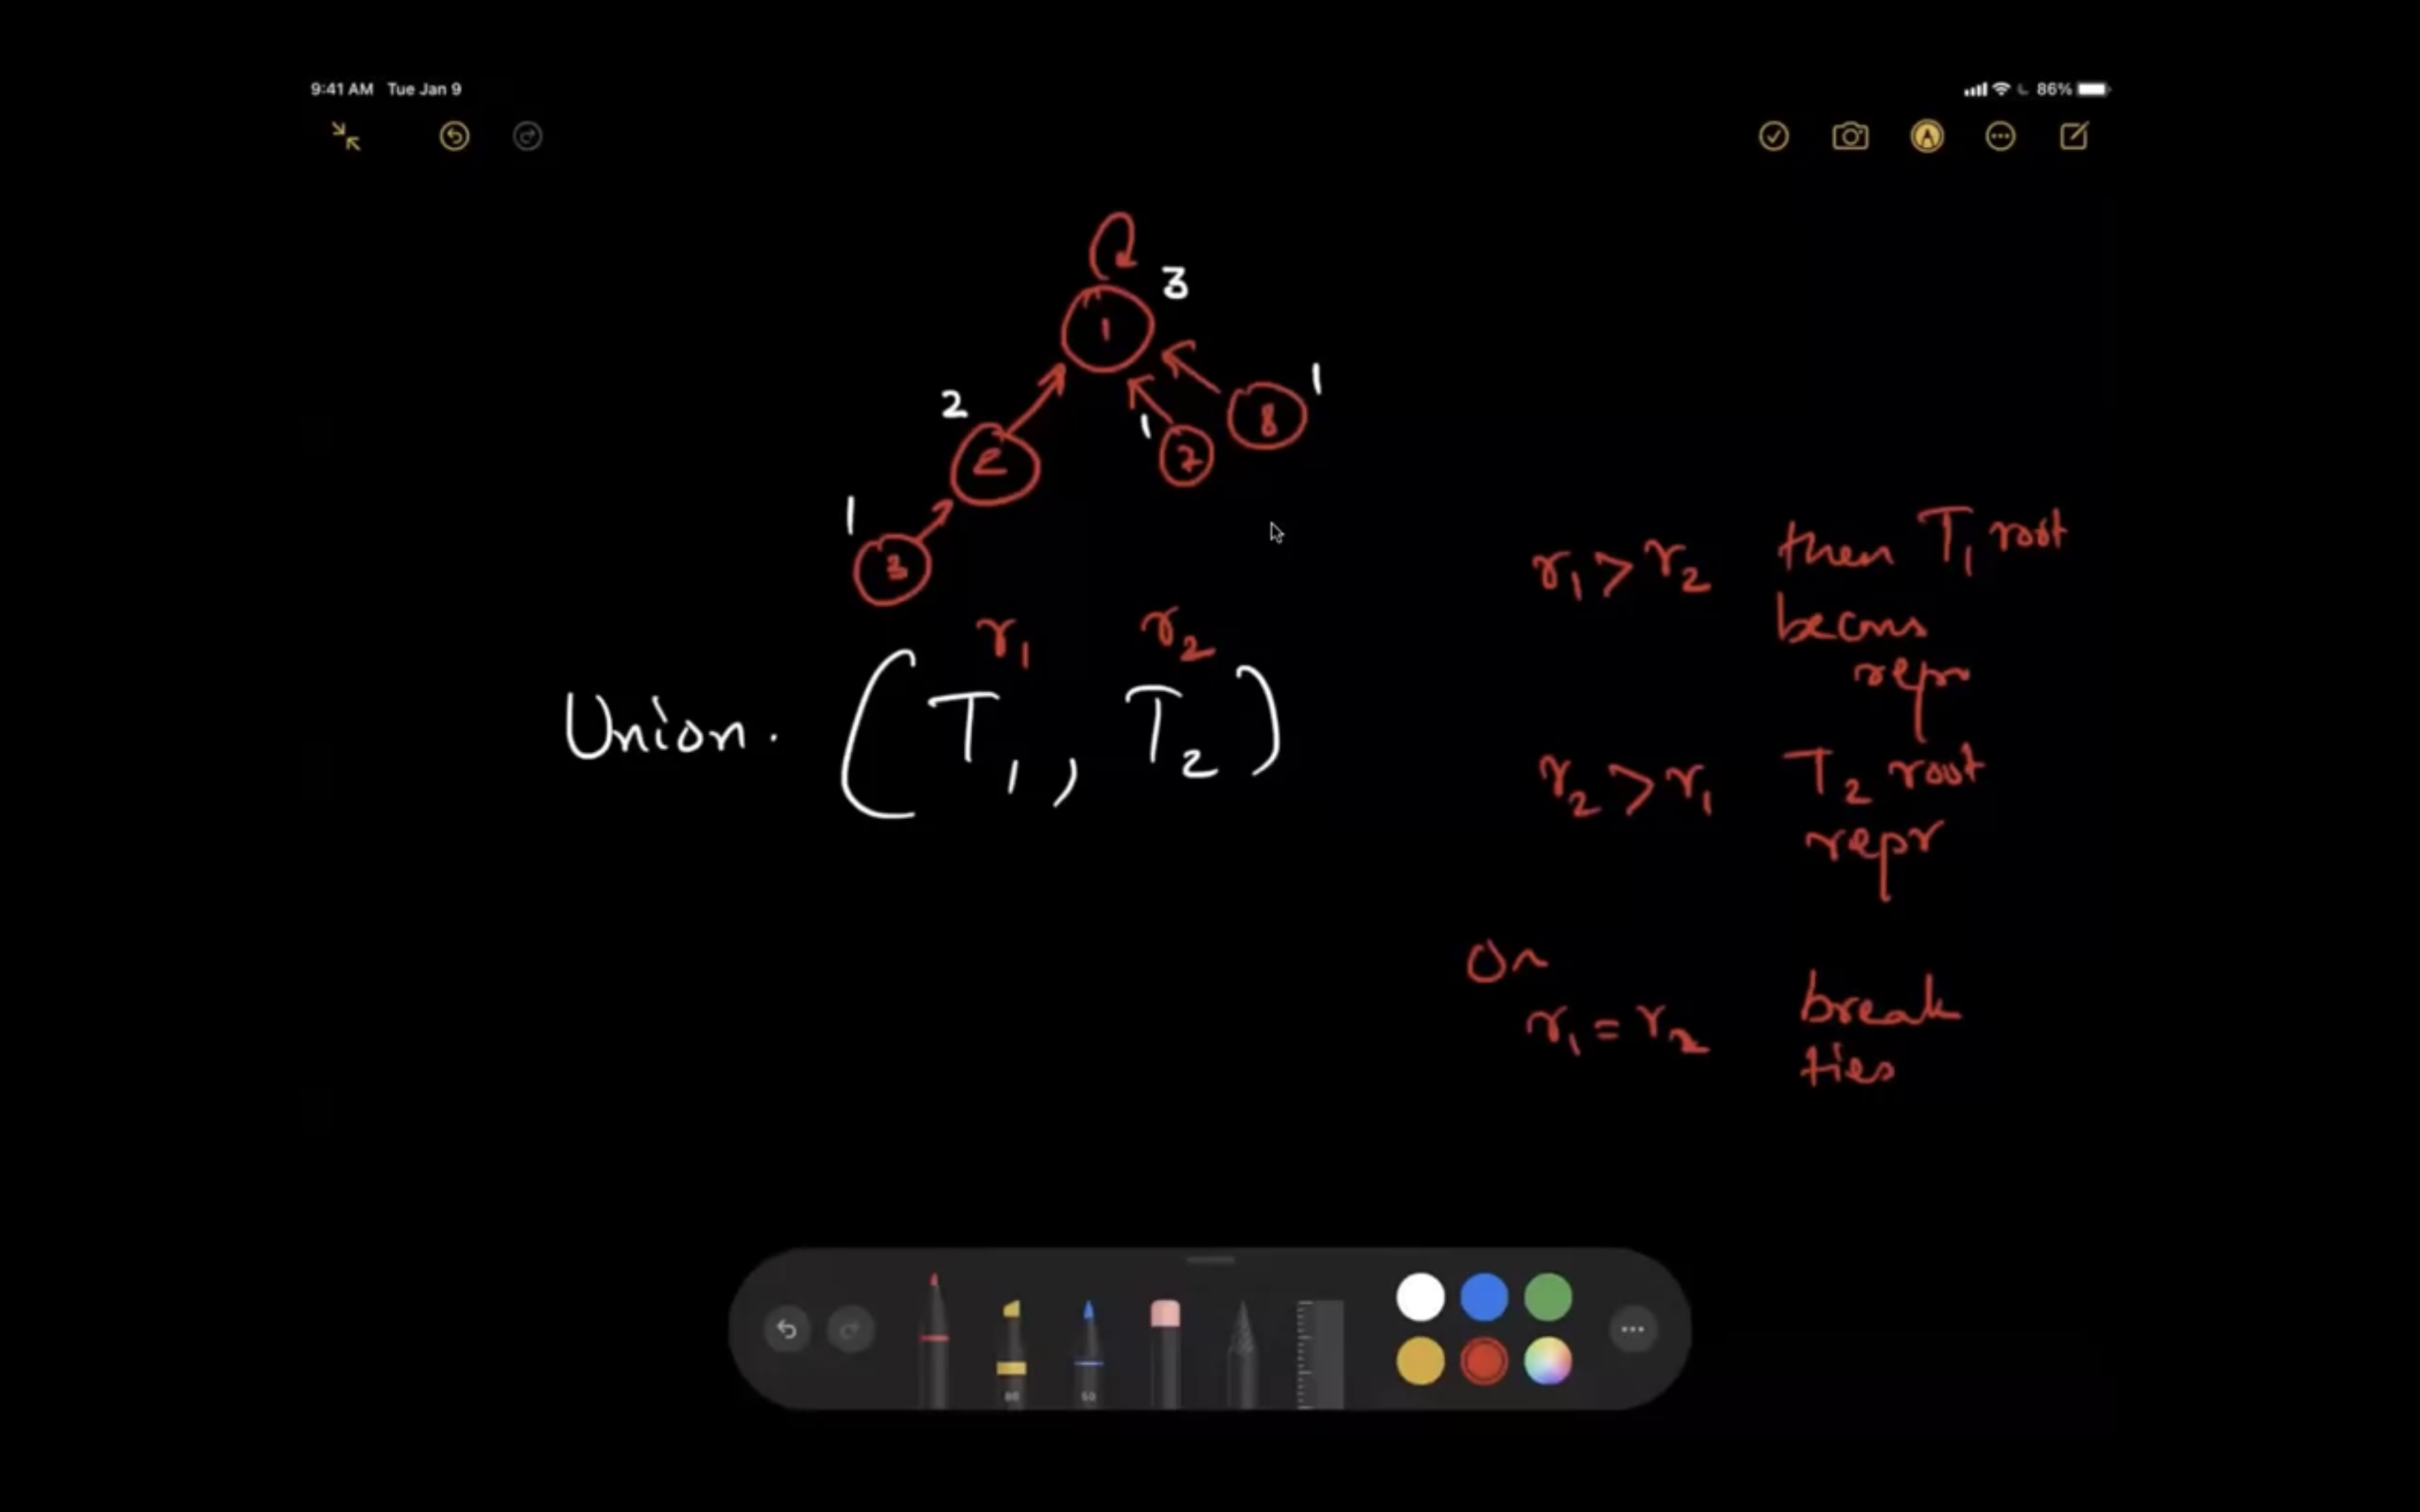 9:41 AM Tue Jan 9
86%
3
1
2
1
1
2
8
1
3
r1 r2
Union. (T1, T2)
r1 > r2 then T1 root
becoms
repr
r2 > r1 T2 root
repr
On
r1 = r2 break
ties
80
50